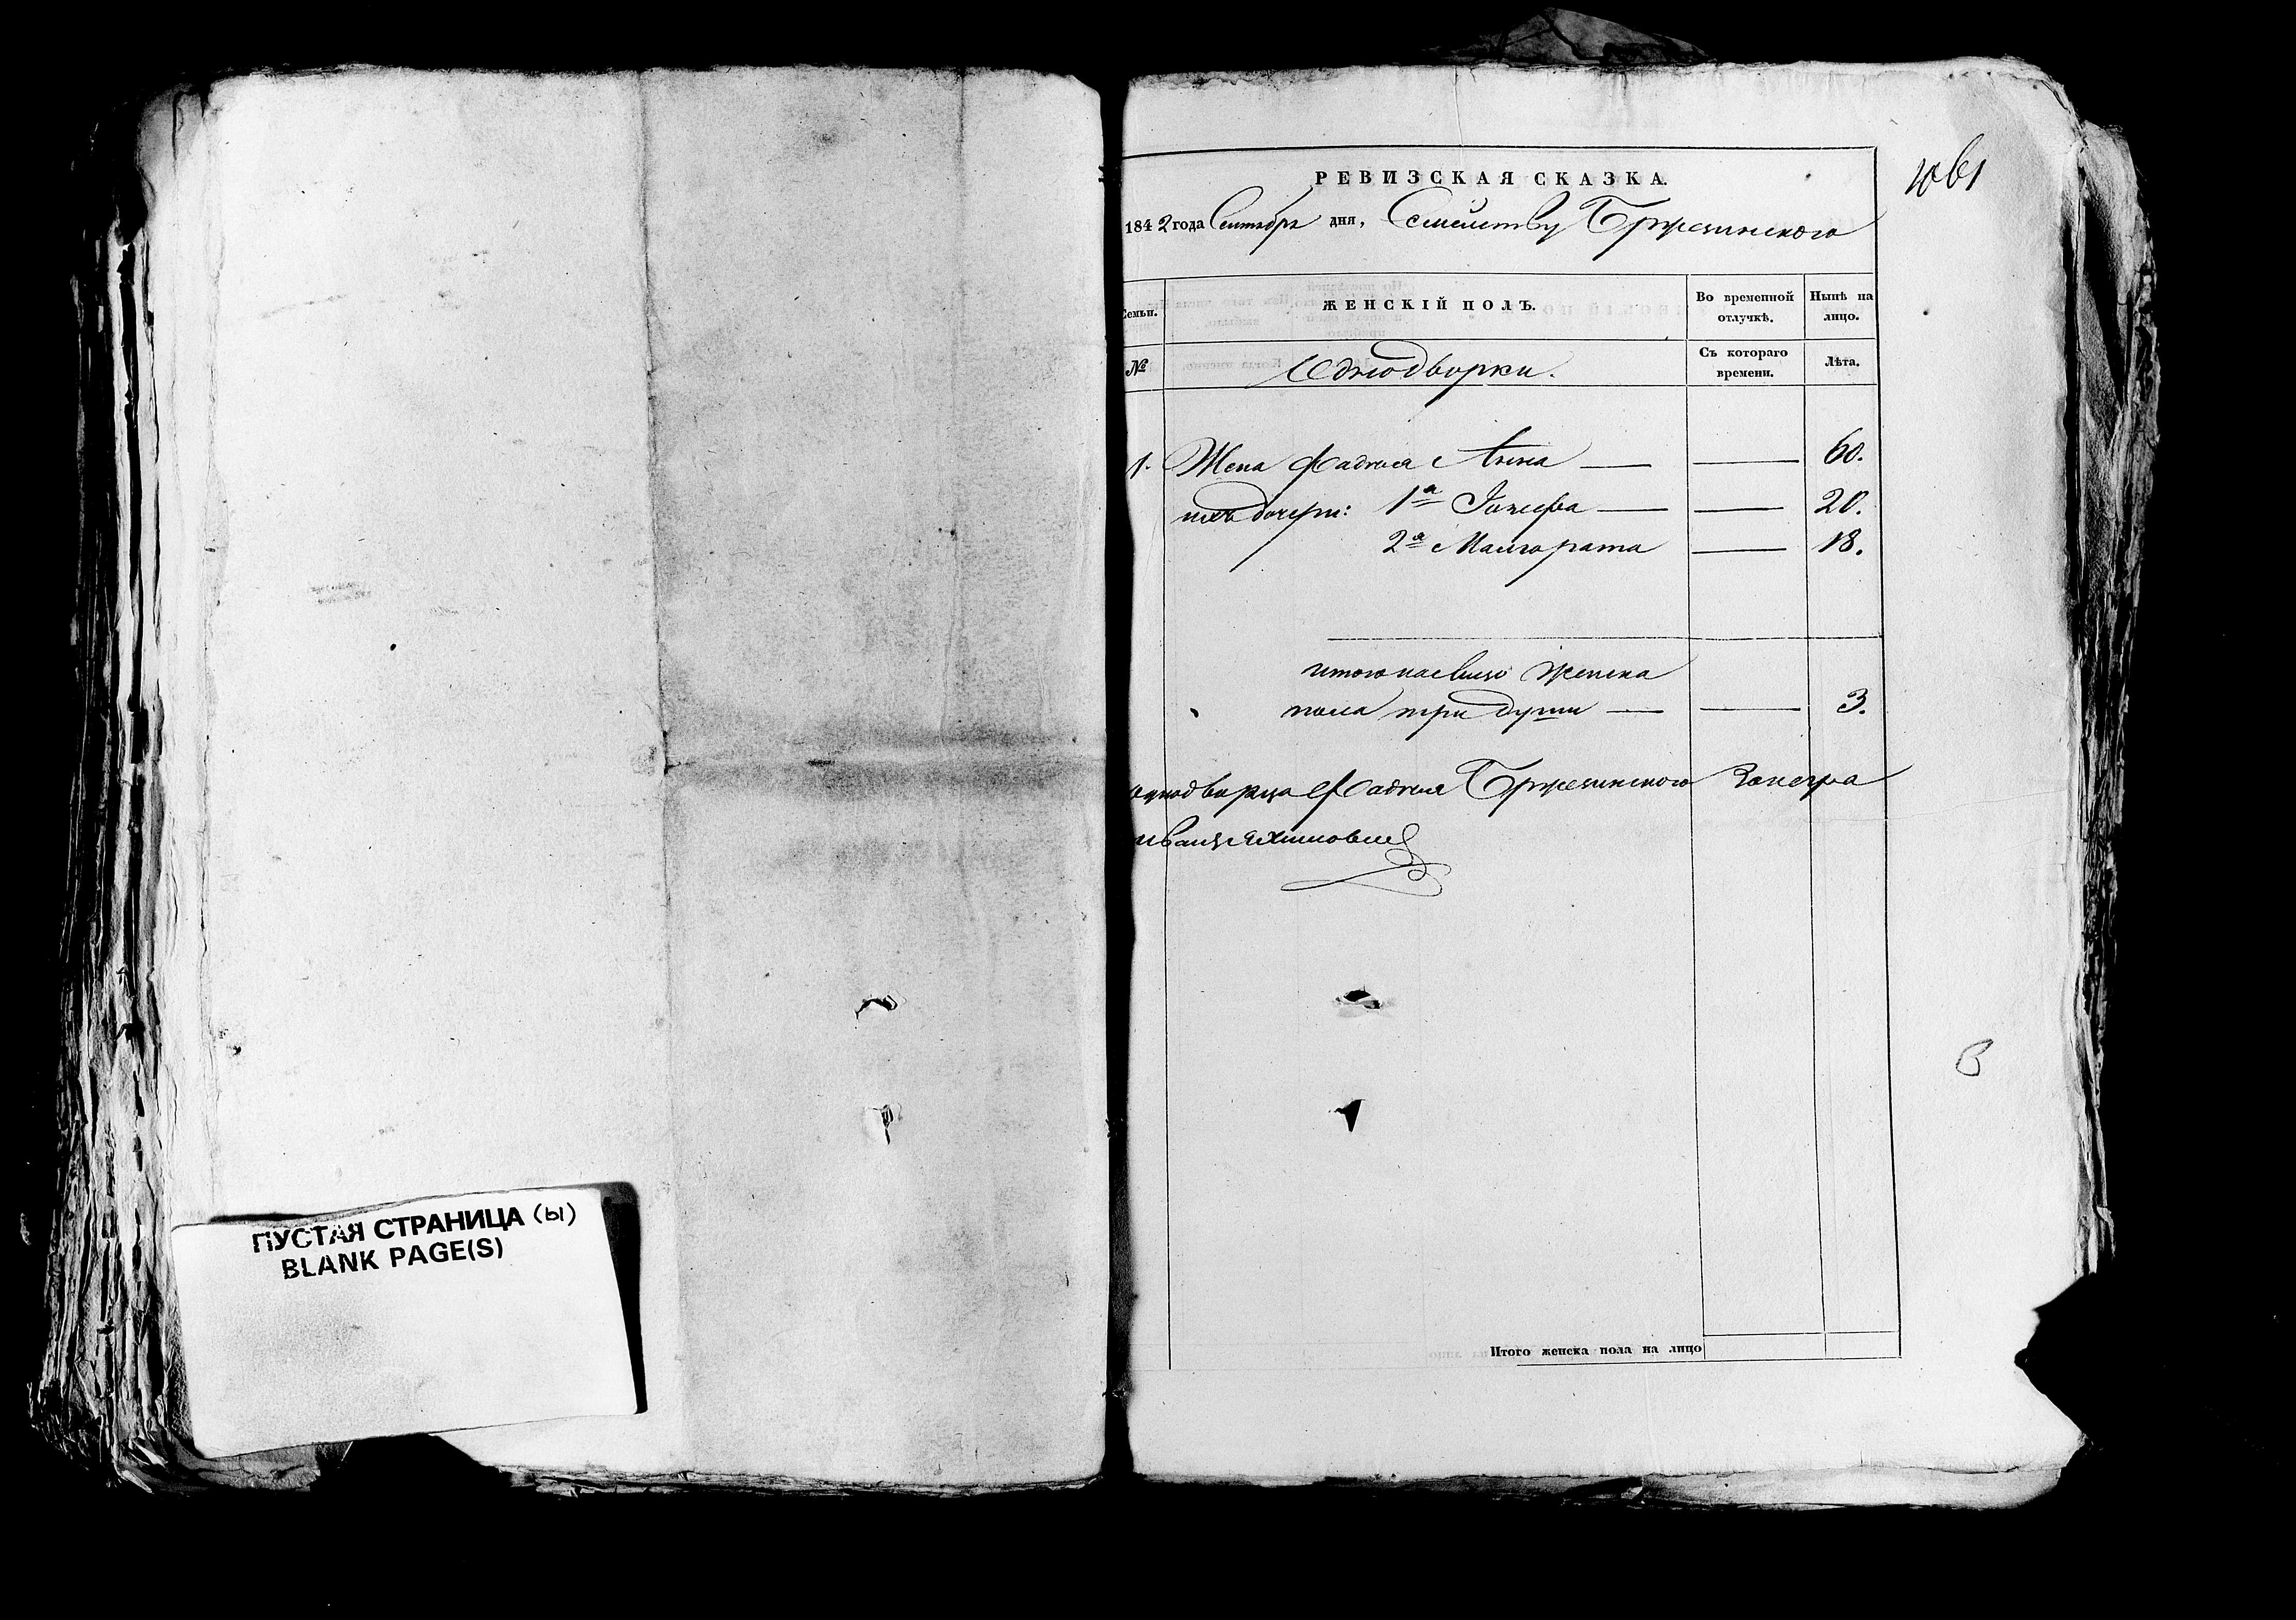 1061
РЕВИЗСКАЯ СКАЗКА.
1842 года Сентября дня, Семейству Бржезинского
Семьи. ЖЕНСКІЙ ПОЛЪ. Во временной отлучкѣ. Нынѣ на лицо.
№ Однодворки. Съ котораго времени. Лѣта.
1. Жена Фадея Анна — — 60.
ихъ дочери: 1я Іозефа — — 20.
2я Малгората — — 18.
итого налицо женска
пола три души — — 3.
однодворца Фадея Бржезинского
В
Итого женска пола на лицо
ПУСТАЯ СТРАНИЦА (Ы)
BLANK PAGE(S)